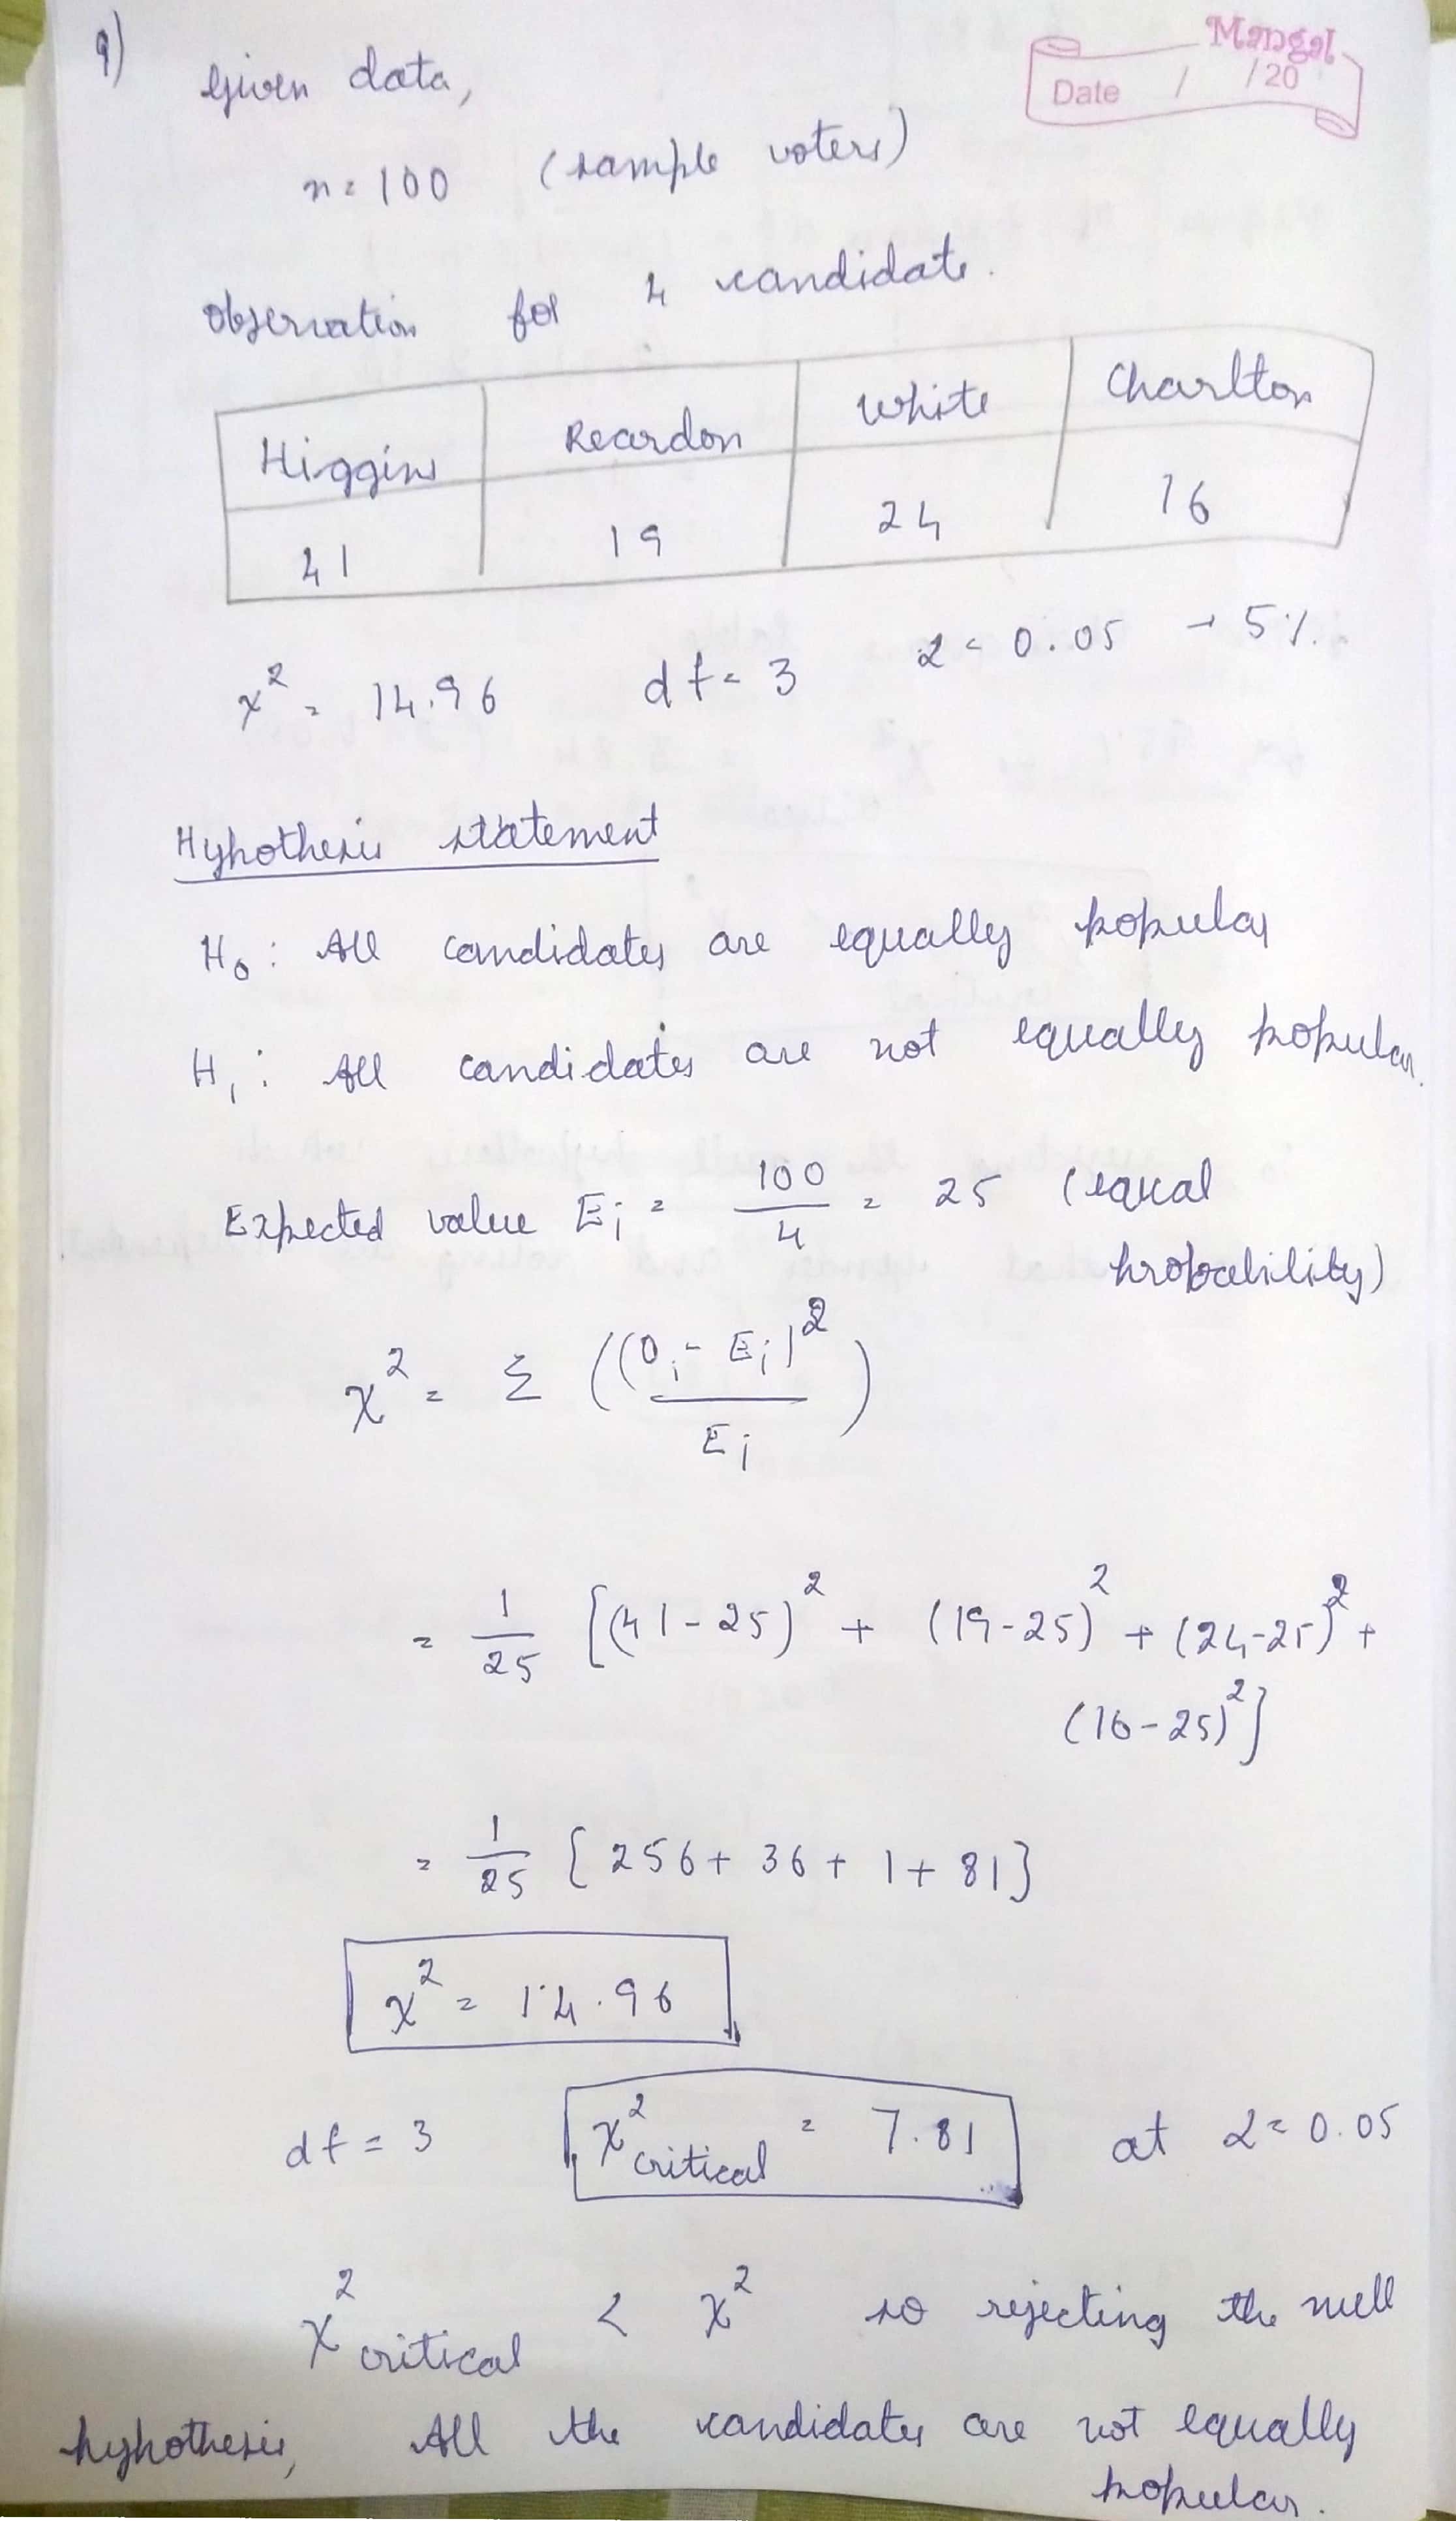 9)
Mangal
Date / /20
Given data,
n = 100 (sample voters)
Observation for 4 candidate.
Higgins Reardon White Charlton
41 19 24 16
χ² = 14.96 df = 3 α = 0.05 → 5%.
Hypothesis statement
H₀ : All candidates are equally popular
H₁ : All candidates are not equally popular.
Expected value Ei = 100/4 = 25 (equal
probability)
χ² = Σ ((Oi - Ei)²/Ei)
= 1/25 [(41-25)² + (19-25)² + (24-25)² +
(16-25)²]
= 1/25 [256 + 36 + 1 + 81]
χ² = 14.96
df = 3 χ² critical = 7.81 at α = 0.05
χ² critical < χ² so rejecting the null
hypothesis, All the candidates are not equally
popular.